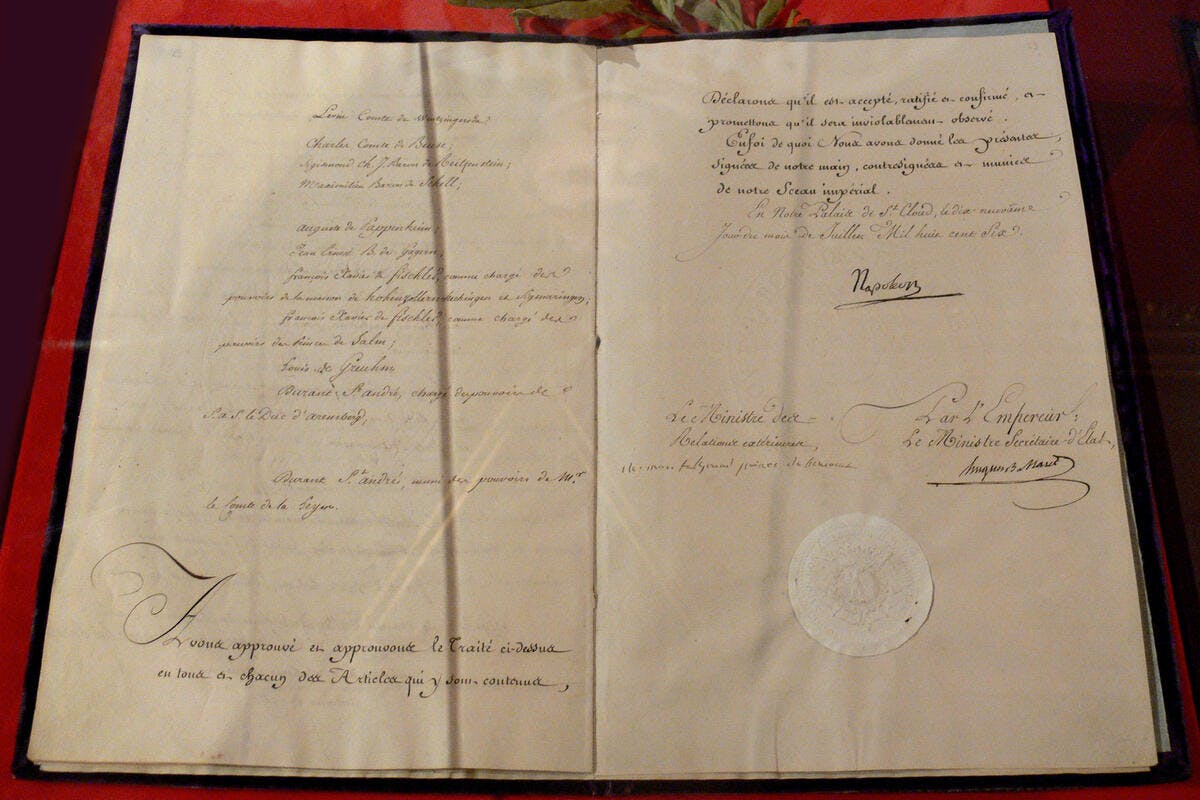 Levin Comte de Wintzingerode
Charles Comte de Beust;
Sigismond Ch. J. Baron de Reitzenstein;
Maximilien Baron de Schell;
Auguste de Pappenheim;
Jean Ernest B. de Gagern;
françois Xavier de fischler, comme chargé des
pouvoirs de la maison de hohenzollern hechingen et Sigmaringen;
françois Xavier de fischler, comme chargé des
pouvoirs du Prince de Salm;
Louis de Greuhm
Durant St. andré, chargé du pouvoir de
S. a. S. le Duc d'aremberg,
Durant St. andré, muni des pouvoirs de Mr.
le Comte de la Leyen.
Avons approuvé et approuvons le Traité ci-dessus
en tous et chacun des Articles qui y sont contenus,
Déclarons qu'il est accepté, ratifié et confirmé, et
promettons qu'il sera inviolablement observé.
Enfoi de quoi Nous avons donné les présentes,
signées de notre main, contresignées et munies
de notre Sceau impérial.
En Notre Palais de St. Cloud, le dix neuvième
Jour du mois de Juillet Mil huit cent Six.
Napoleon
Le Ministre des
Relations extérieures,
ch. mau. talleyrand prince de benevent
Par L'Empereur:
Le Ministre Secrétaire d'Etat,
hugues B. Maret